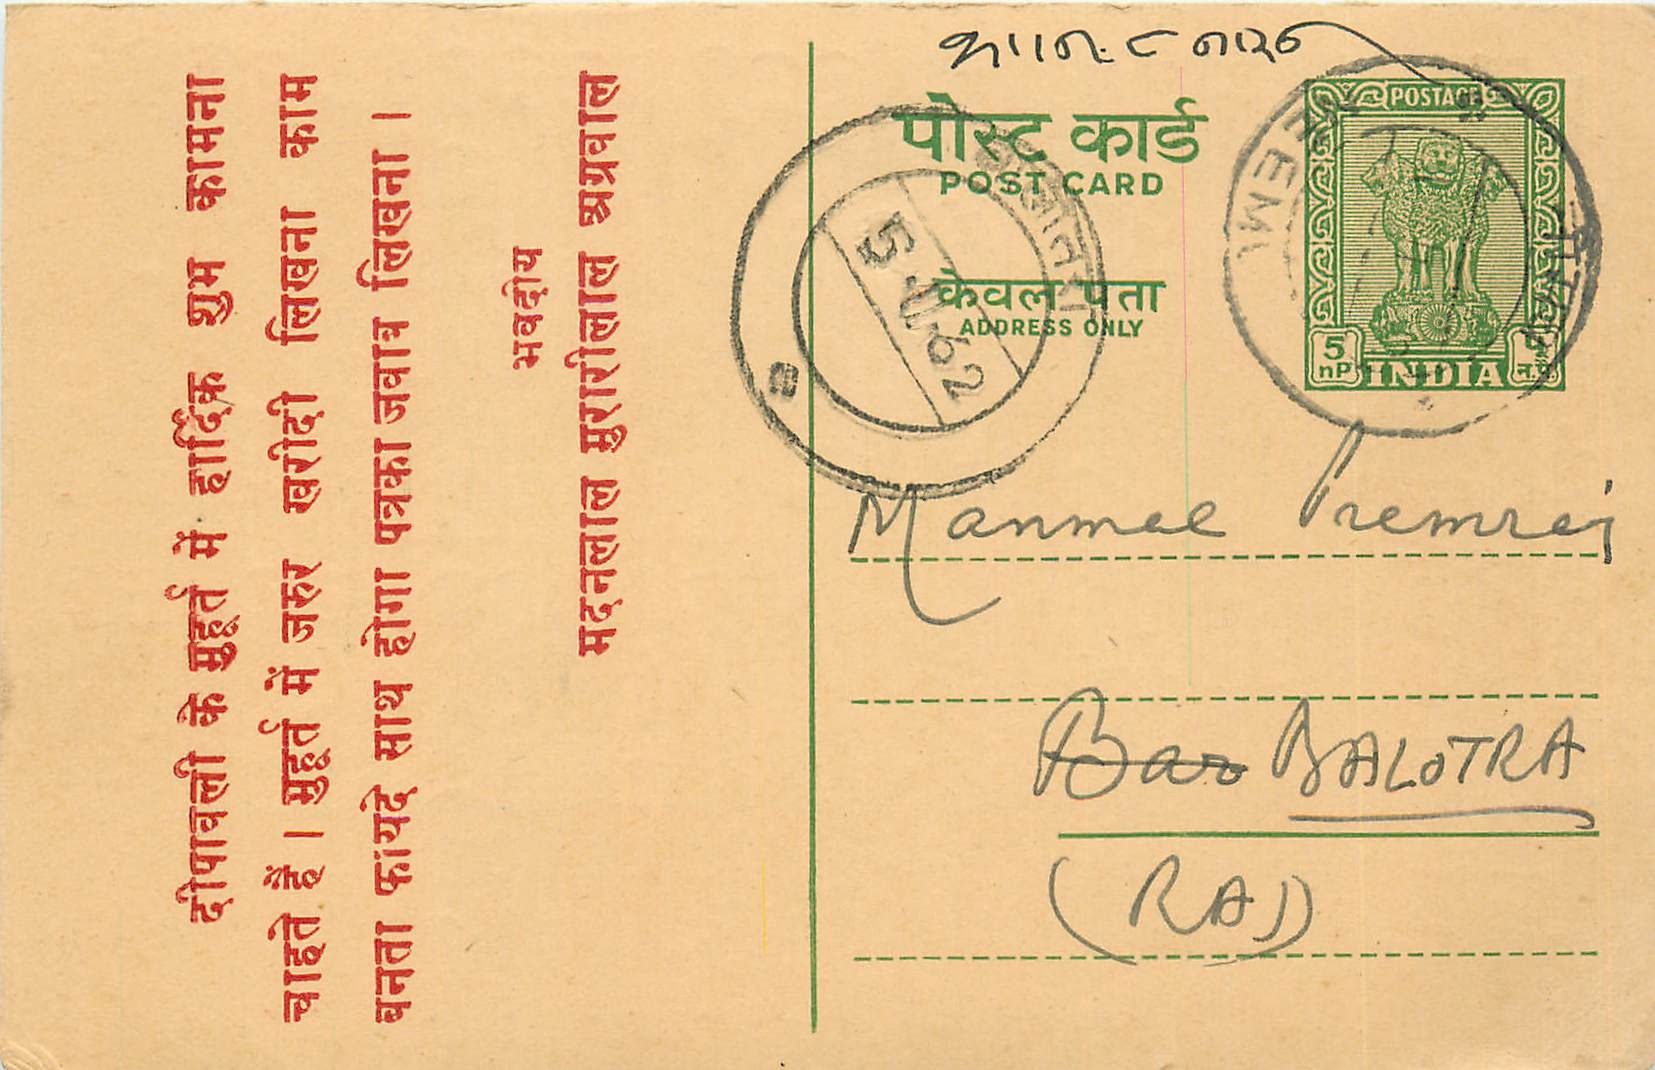 दीपावली के मुहूर्त में हार्दिक शुभ कामना
चाहते हैं । मुहूर्त में जरुर खरीदी लिखना काम
बनता फायदे साथ होगा पत्रका जवाब लिखना ।
भवदीय
मदनलाल मुरारीलाल अग्रवाल
पोस्ट कार्ड
POST CARD
केवल पता
ADDRESS ONLY
POSTAGE
5
nP
INDIA
न.पै.
5 62
Manmal Premraj
Bar BALOTRA
(RAJ)